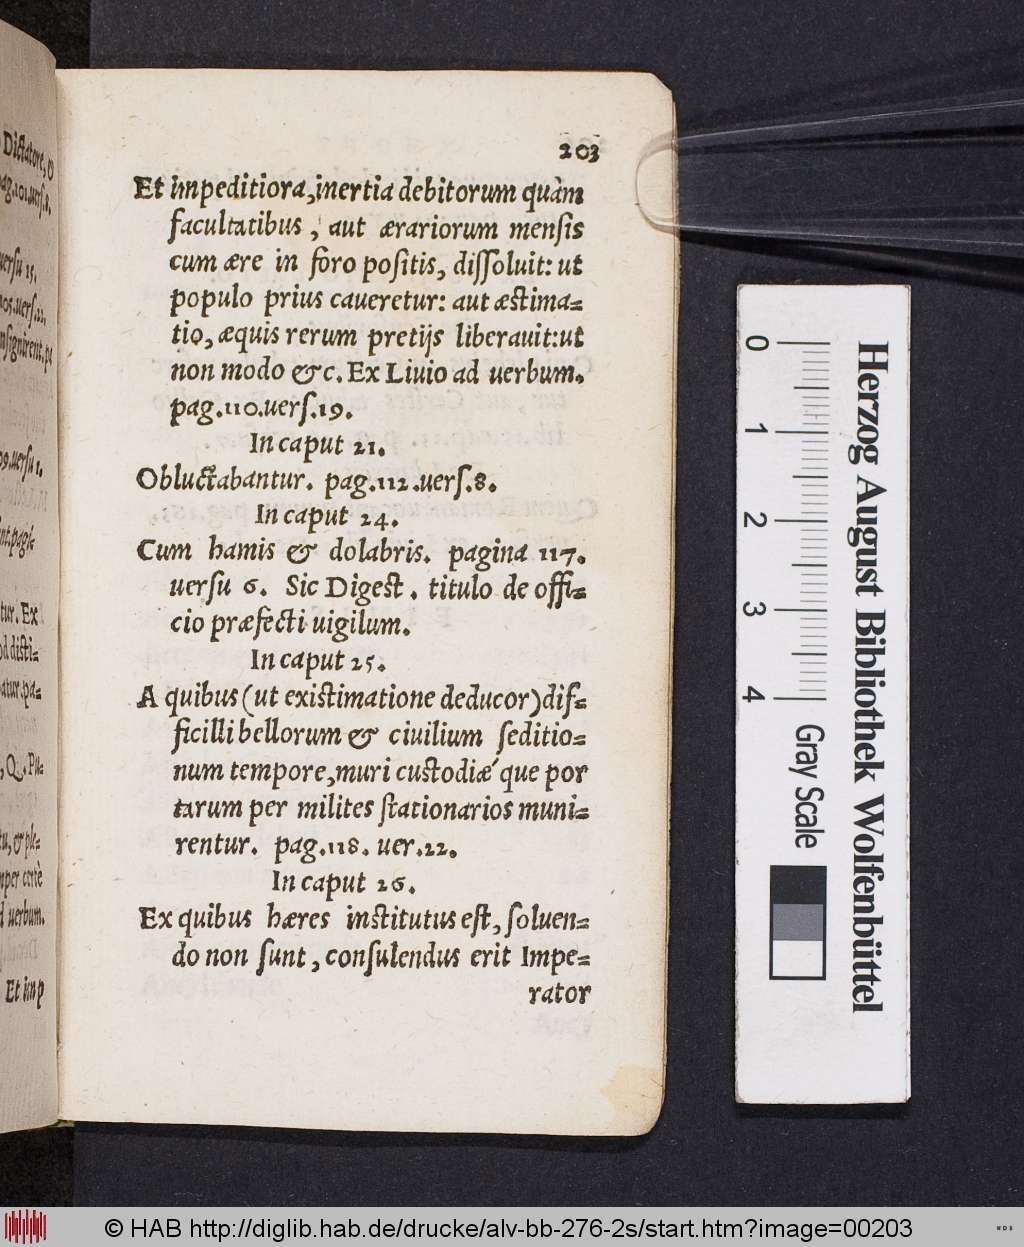 203
Et impeditiora, inertia debitorum quàm
facultatibus, aut ærariorum mensis
cum ære in foro positis, dißoluit: ut
populo prius caueretur: aut æstima=
tio, æquis rerum pretijs liberauit: ut
non modo &c. Ex Liuio ad uerbum.
pag. 110. uers. 19.
In caput 21.
Obluctabantur. pag. 112. uers. 8.
In caput 24.
Cum hamis & dolabris. pagina 117.
uersu 6. Sic Digest. titulo de offi=
cio præfecti uigilum.
In caput 25.
A quibus (ut existimatione deducor) dif=
ficilli bellorum & ciuilium seditio=
num tempore, muri custodiǽ que por
tarum per milites stationarios muni=
rentur. pag. 118. uer. 22.
In caput 26.
Ex quibus hæres institutus est, soluen=
do non sunt, consulendus erit Impe=
rator
Dictatore, &
uersu 15.
nsignirent. pa
tur. Ex
od disti=
atur. pa=
, Q. Pu=
tu, & ple=
mper certè
d uerbum.
Et imp
0 1 2 3 4
Gray Scale
Herzog August Bibliothek Wolfenbüttel
© HAB http://diglib.hab.de/drucke/alv-bb-276-2s/start.htm?image=00203